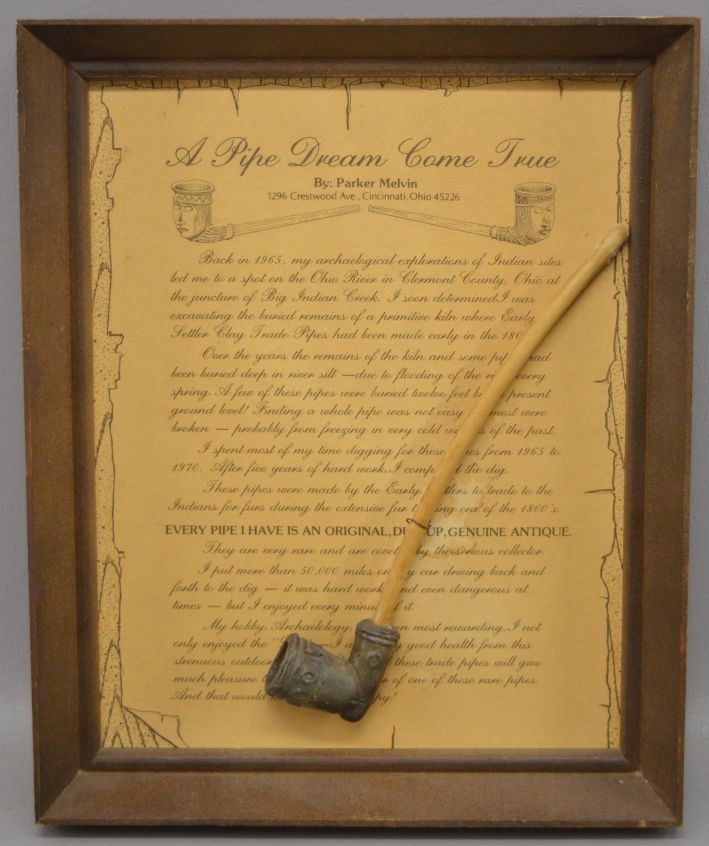 A Pipe Dream Come True
By: Parker Melvin
1296 Crestwood Ave., Cincinnati, Ohio 45226
Back in 1965, my archaelogical explorations of Indian sites
led me to a spot on the Ohio River in Clermont County, Ohio at
the juncture of Big Indian Creek. I soon determined I was
excavating the buried remains of a primitive kiln where Early
Settler Clay Trade Pipes had been made early in the
Over the years the remains of the kiln and some had
been buried deep in river silt — due to flooding of the every
spring. A few of these pipes were buried twelve feet present
ground level! Finding a whole pipe was not easy most were
broken — probably from freezing in very cold of the past.
I spent most of my time digging for these from 1965 to
1970. After five years of hard work, I the dig.
These pipes were made by the Early to trade to the
Indians for furs during the extensive fur era of the 1800's.
EVERY PIPE I HAVE IS AN ORIGINAL, UP, GENUINE ANTIQUE.
They are very rare and are by the serious collector.
I put more than 50,000 miles on car driving back and
forth to the dig — it was hard work and even dangerous at
times — but I enjoyed every of it.
My hobby, Archaelology most rewarding. I not
only enjoyed the good health from this
strenuous these trade pipes will give
much pleasure of one of these rare pipes.
And that would